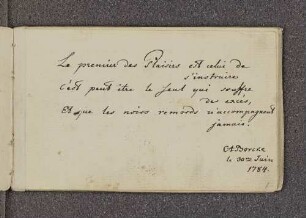 Le premier des Plaisirs est celui de
s'instruire
C'est peut être le seul qui souffre
des exces,
Et que les noirs remords n'accompagnent
jamais.
CABorcke
le 30me Juin
1784.